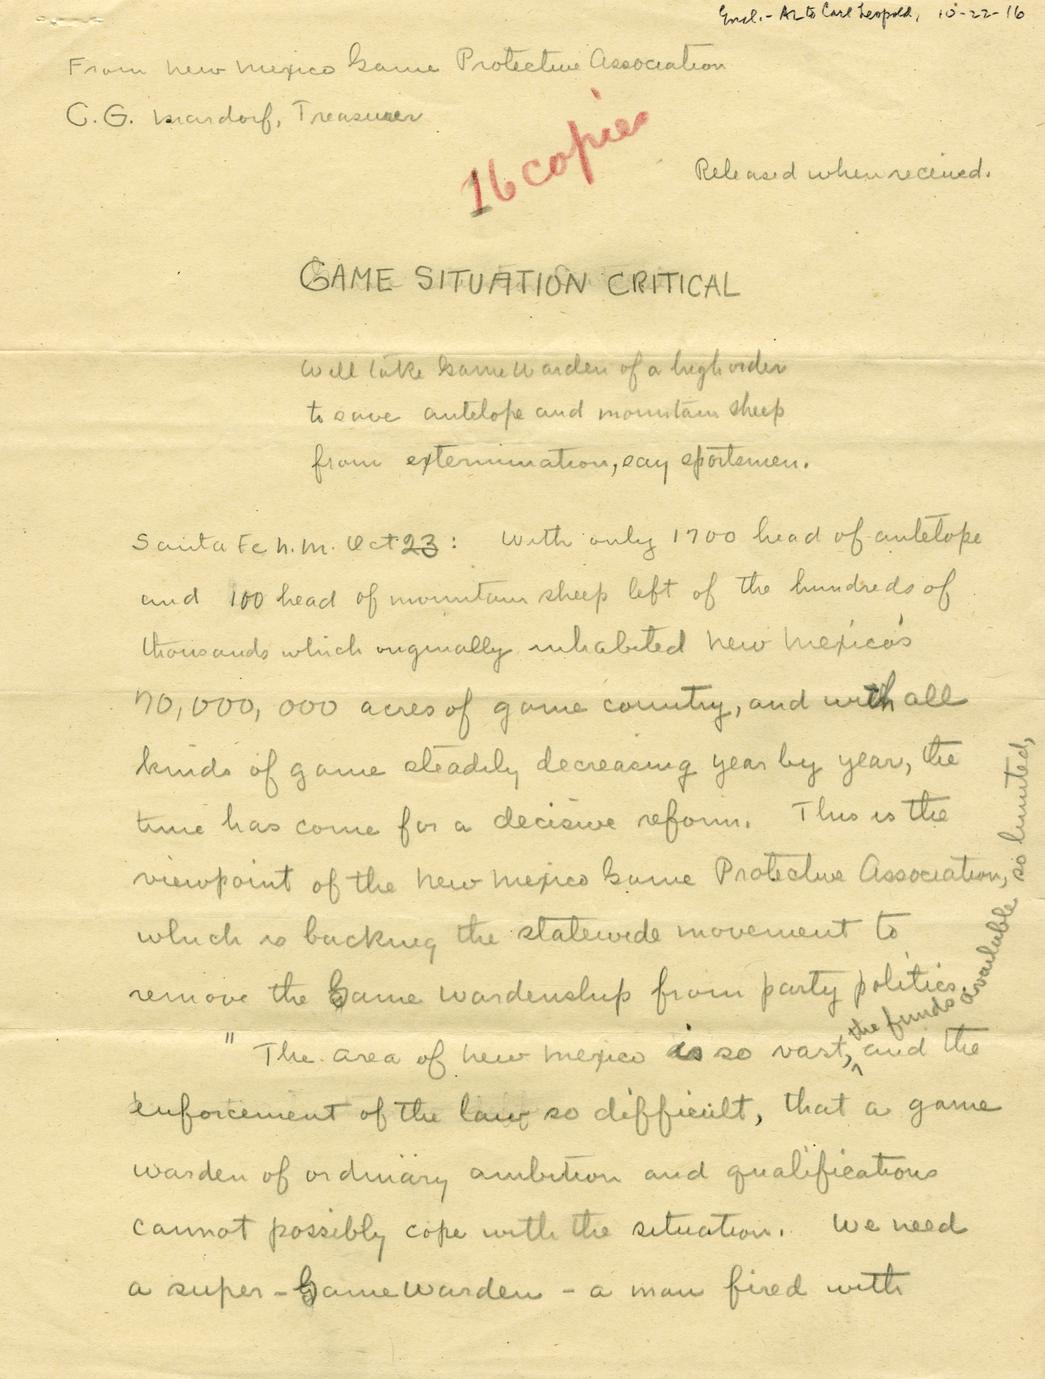 Encl. - AL to Carl Leopold, 10-22-16
From New Mexico Game Protective Association
C.G. Mardorf, Treasurer
16 copies
Released when received.
GAME SITUATION CRITICAL
Will take Game Warden of a high order
to save antelope and mountain sheep
from extermination, say sportsmen.
Santa Fe N.M. Oct 23: With only 1700 head of antelope
and 100 head of mountain sheep left of the hundreds of
thousands which originally inhabited New Mexico's
70,000,000 acres of game country, and with all
kinds of game steadily decreasing year by year, the
time has come for a decisive reform. This is the
viewpoint of the New Mexico Game Protective Association,
which is backing the statewide movement to
remove the Game wardenship from party politics.
"The area of New Mexico is so vast, and the
the funds available so limited,
enforcement of the law so difficult, that a game
warden of ordinary ambition and qualifications
cannot possibly cope with the situation. We need
a super-Game Warden - a man fired with